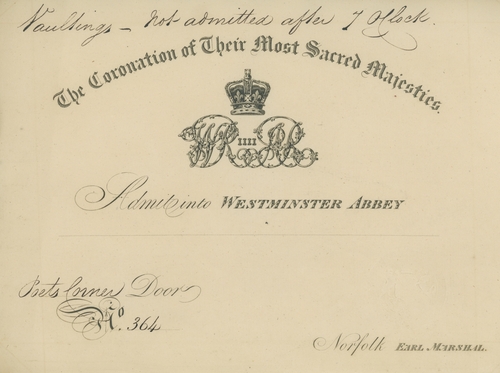 Vaultings - Not admitted after 7 OClock.
The Coronation of Their Most Sacred Majesties.
WR IIII AR
Admit into WESTMINSTER ABBEY
Poets Corner Door
No. 364
Norfolk EARL MARSHAL.